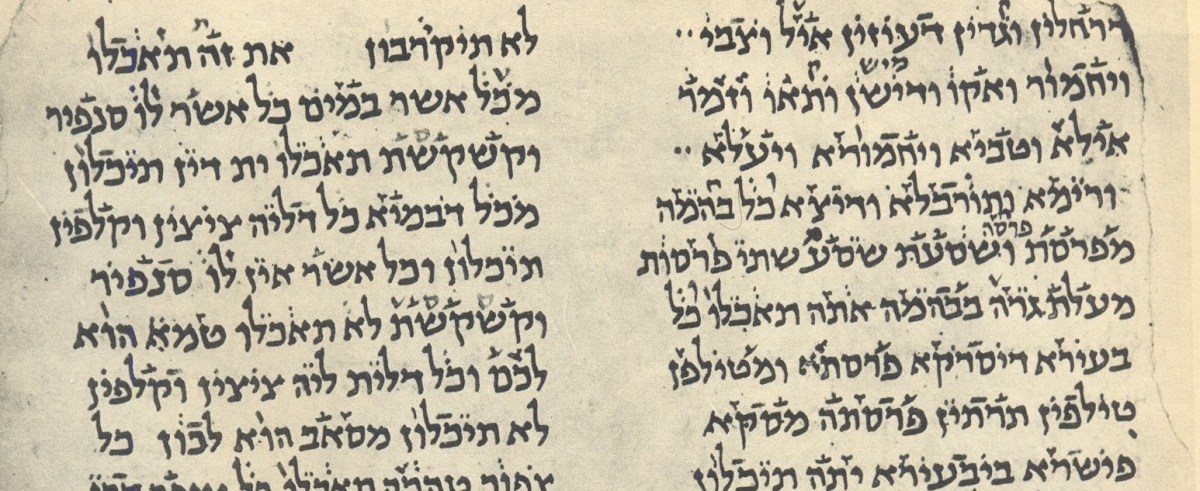 דרחלין וגדיין דעיזין איל וצבי
ויחמור ואקו ודישן ותאו וזמר
אילא וטביא ויחמורא ויעלא
ורימא ותורבלא ודיצא כל בהמה
פרסה
מפרסת ושסעת שסע שתי פרסות
מעלת גרה בבהמה אתה תאכלו כל
בעירא דיסדיקא פרסתא ומטילפן
טילפין תרתין פרסתה מסקא
פישרא ביבעירא יתה תיכלון
לא תיקרבון את זה תאכלו
מכל אשר במים כל אשר לו סנפיר
וקשקשת תאכלו ית דין תיכלון
מכל דבמיא כל דליה ציצין וקלפין
תיכלון וכל אשר אין לו סנפיר
וקשקשת לא תאכלו טמא הוא
לכם וכל דלית ליה ציצין וקלפין
לא תיכלון מסאב הוא לכון כל
צפור טהרה תאכלו